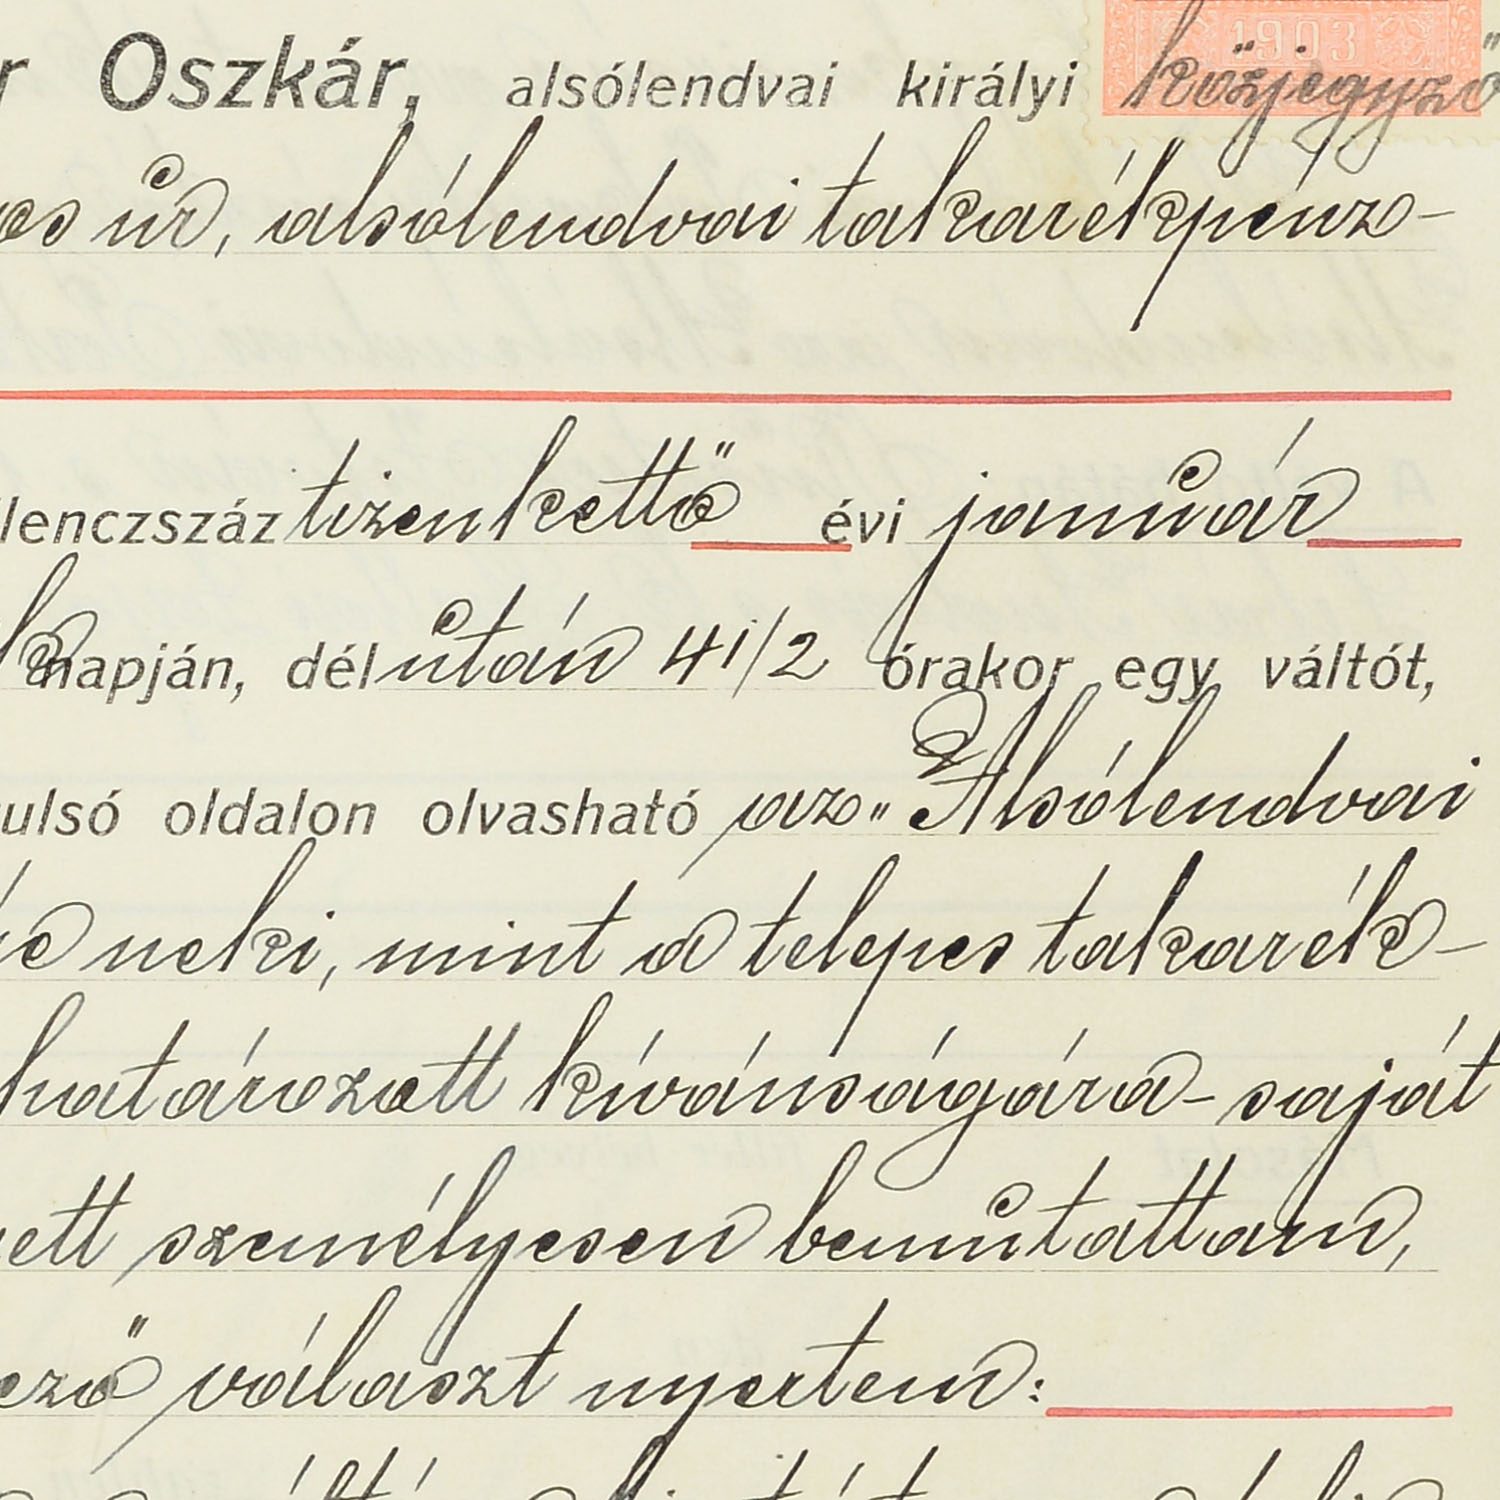 r Oszkár, alsólendvai királyi közjegyző
1903
os úr, alsólendvai takarékpénz-
lenczszáz tizenkettő évi január
napján, délután 4 1/2 órakor egy váltót,
ulsó oldalon olvasható az „Alsólendvai
e neki, mint a telepes takarék-
határozott kívánságára - saját
ett személyesen bemutattam,
ező választ nyertem: